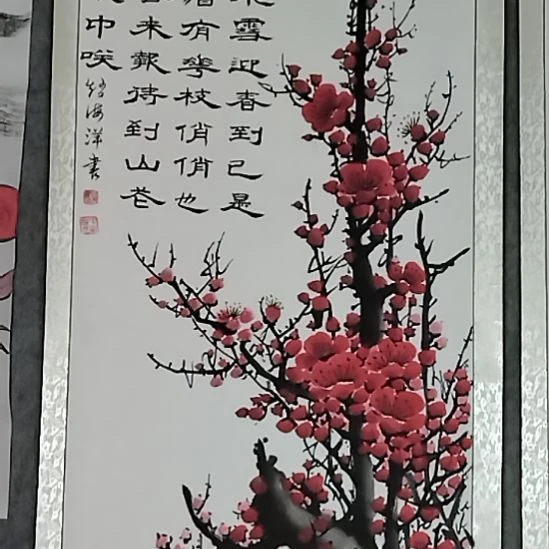 雪迎春到已是
有華枝俏俏也
来報待到山花
中咲
海洋書